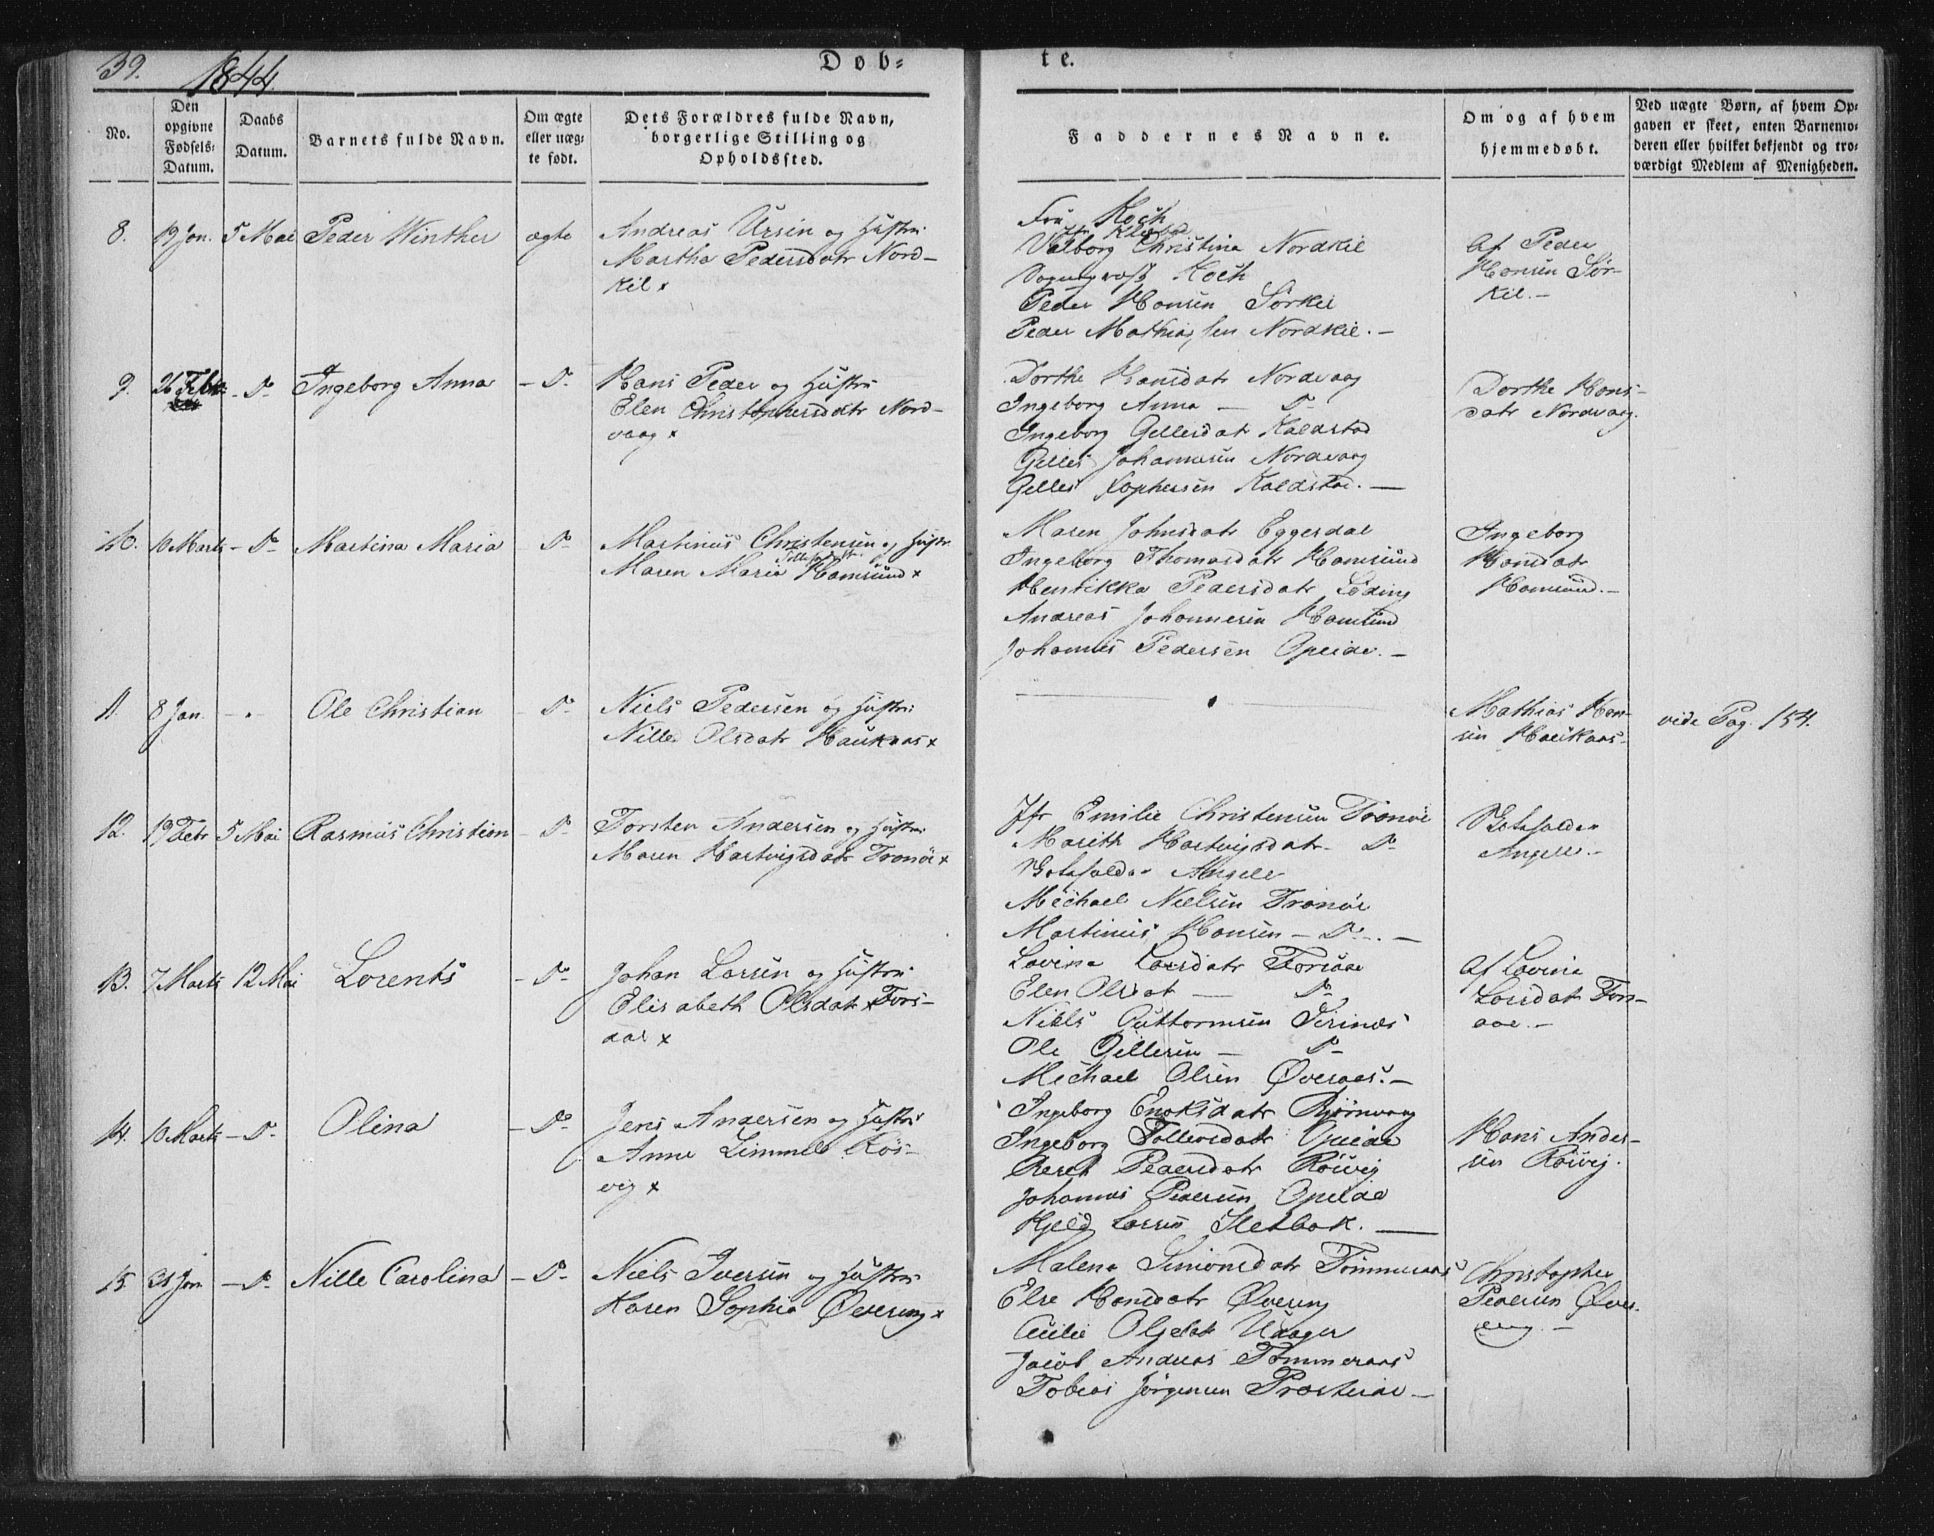 39.
1844.
Døb-
te.
No.
Den opgivne Fødsels-Datum.
Daabs Datum.
Barnets fulde Navn.
Om ægte eller uæg-te født.
Dets Forældres fulde Navn, borgerlige Stilling og Opholdssted.
Faddernes Navne.
Om og af hvem hjemmedøbt.
Ved uægte Børn, af hvem Op-gaven er skeet, enten Barnemo-deren eller hvilket bekjendt og tro-værdigt Medlem af Menigheden.
8. 19 Jan. 5 Mai Peder Winther ægte
Andreas Ursin og Hustru
Martha Pedersdatr Nord-
kil x
Fru Koch
Valborg Christina Nordkil
Koch
Peder Hansen Sørkil
Peder Mathiassen Nordkil. —
Af Peder
Hansen Sør-
kil. —
9. 26 Febr. - Do Ingeborg Anna - Do
Hans Peder og Hustru
Elen Christophersdatr Nord-
vaag x
Dorthe Hansdatr Nordvaag
Ingeborg Anna — Do
Ingeborg Gellesdatr Kaldstad
Gelles Johannesen Nordvaag
Gelles Xophersen Kaldstad. —
Dorthe Hans-
datr Nordvaag.
10. 10 Marts - Do Martina Maria - Do
Martinus Christensen og Hustr
Maren Maria Hamsund x
Maren Johnsdatr Eggesdal
Ingeborg Thomasdatr Hamsund
Henrikka Pedersdatr Løding
Andreas Johannesen Hamsund
Johannes Pedersen Opeide. —
Ingeborg
Hansdatr
Hamsund. —
11. 8 Jan. - " Ole Christian - Do
Niels Pedersen og Hustru
Nille Olsdatr Haukaas x
Mathias Han-
sen Haukaas.
vide Pag. 154.
12. 19 Febr 5 Mai Rasmus Christian - Do
Torsten Andersen og Hustru
Maren Hartvigsdatr Tranøe x
Jfr Emilie Christensen Tranøe
Marith Hartvigsdatr - Do
Angell
Michael Nielsen Tranøe
Martinus Hansen - Do. —
Angell. —
13. 7 Marts 12 Mai Lorents - Do
Johan Larsen og Hustru
Elisabeth Olsdatr x Fors-
aae x
Lovina Larsdatr Forsaae
Elen Olsdat — Do
Niels Guttormsen
Ole Gellesen — Do
Michael Olsen Øveraas. —
Af Lovina
Larsdatr Fors-
aae. —
14. 10 Marts - Do Olina - Do
Jens Andersen og Hustru
Anne Limmels Røs-
vig x
Ingeborg Enoksdatr Bjørnvaag
Ingeborg Tollevsdatr Opeide
Beret Pedersdatr Røsvig
Johannes Pedersen Opeide
Kjeld Larsen Sletbak. —
Hans Ander-
sen Røsvig.
15 31 Jan - Do Nille Carolina - Do
Niels Iversen og Hustru
Karen Sophia Øvereng x
Malena Simonsdatr Tømmeraas
Else Hansdatr Øvereng
Cecilie Olsdat
Jacob Andreas Tømmeraas
Tobias Jørgensen Presteide —
Christopher
Pedersen Øver-
eng. —